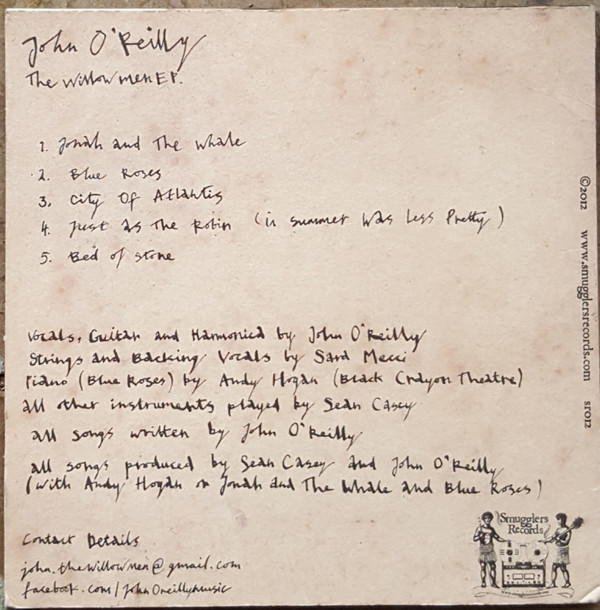 John O'Reilly
The Willow men E.P.
1. Jonah and The Whale
2. Blue Roses
3. City Of Atlantis
4. Just As The Robin (in summer was Less Pretty)
5. Bed of stone
Vocals, Guitar and Harmonica by John O'Reilly
Strings and Backing Vocals by Sara Mecci
Piano (Blue Roses) by Andy Hogan (Black Crayon Theatre)
all other instruments played by Sean Casey
all songs written by John O'Reilly
all songs produced by Sean Casey and John O'Reilly
(with Andy Hogan on Jonah and The Whale and Blue Roses)
Contact Details
john.thewillowmen@gmail.com
facebook.com/JohnOreillymusic
©2012 www.smugglersrecords.com sr012
Smugglers
Records